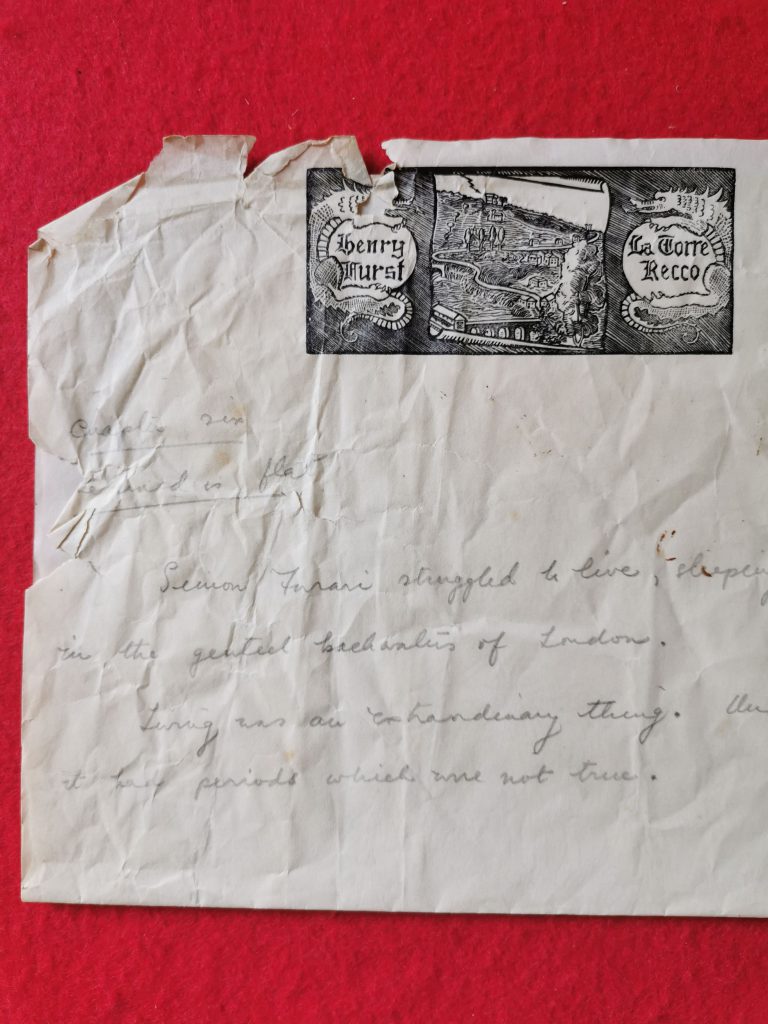 Henry
Furst
La Torre
Recco
six
Simon Ferrari struggled to live, sleeping
in the genteel backwaters of London.
Living was an extraordinary thing.
it had periods which were not true.